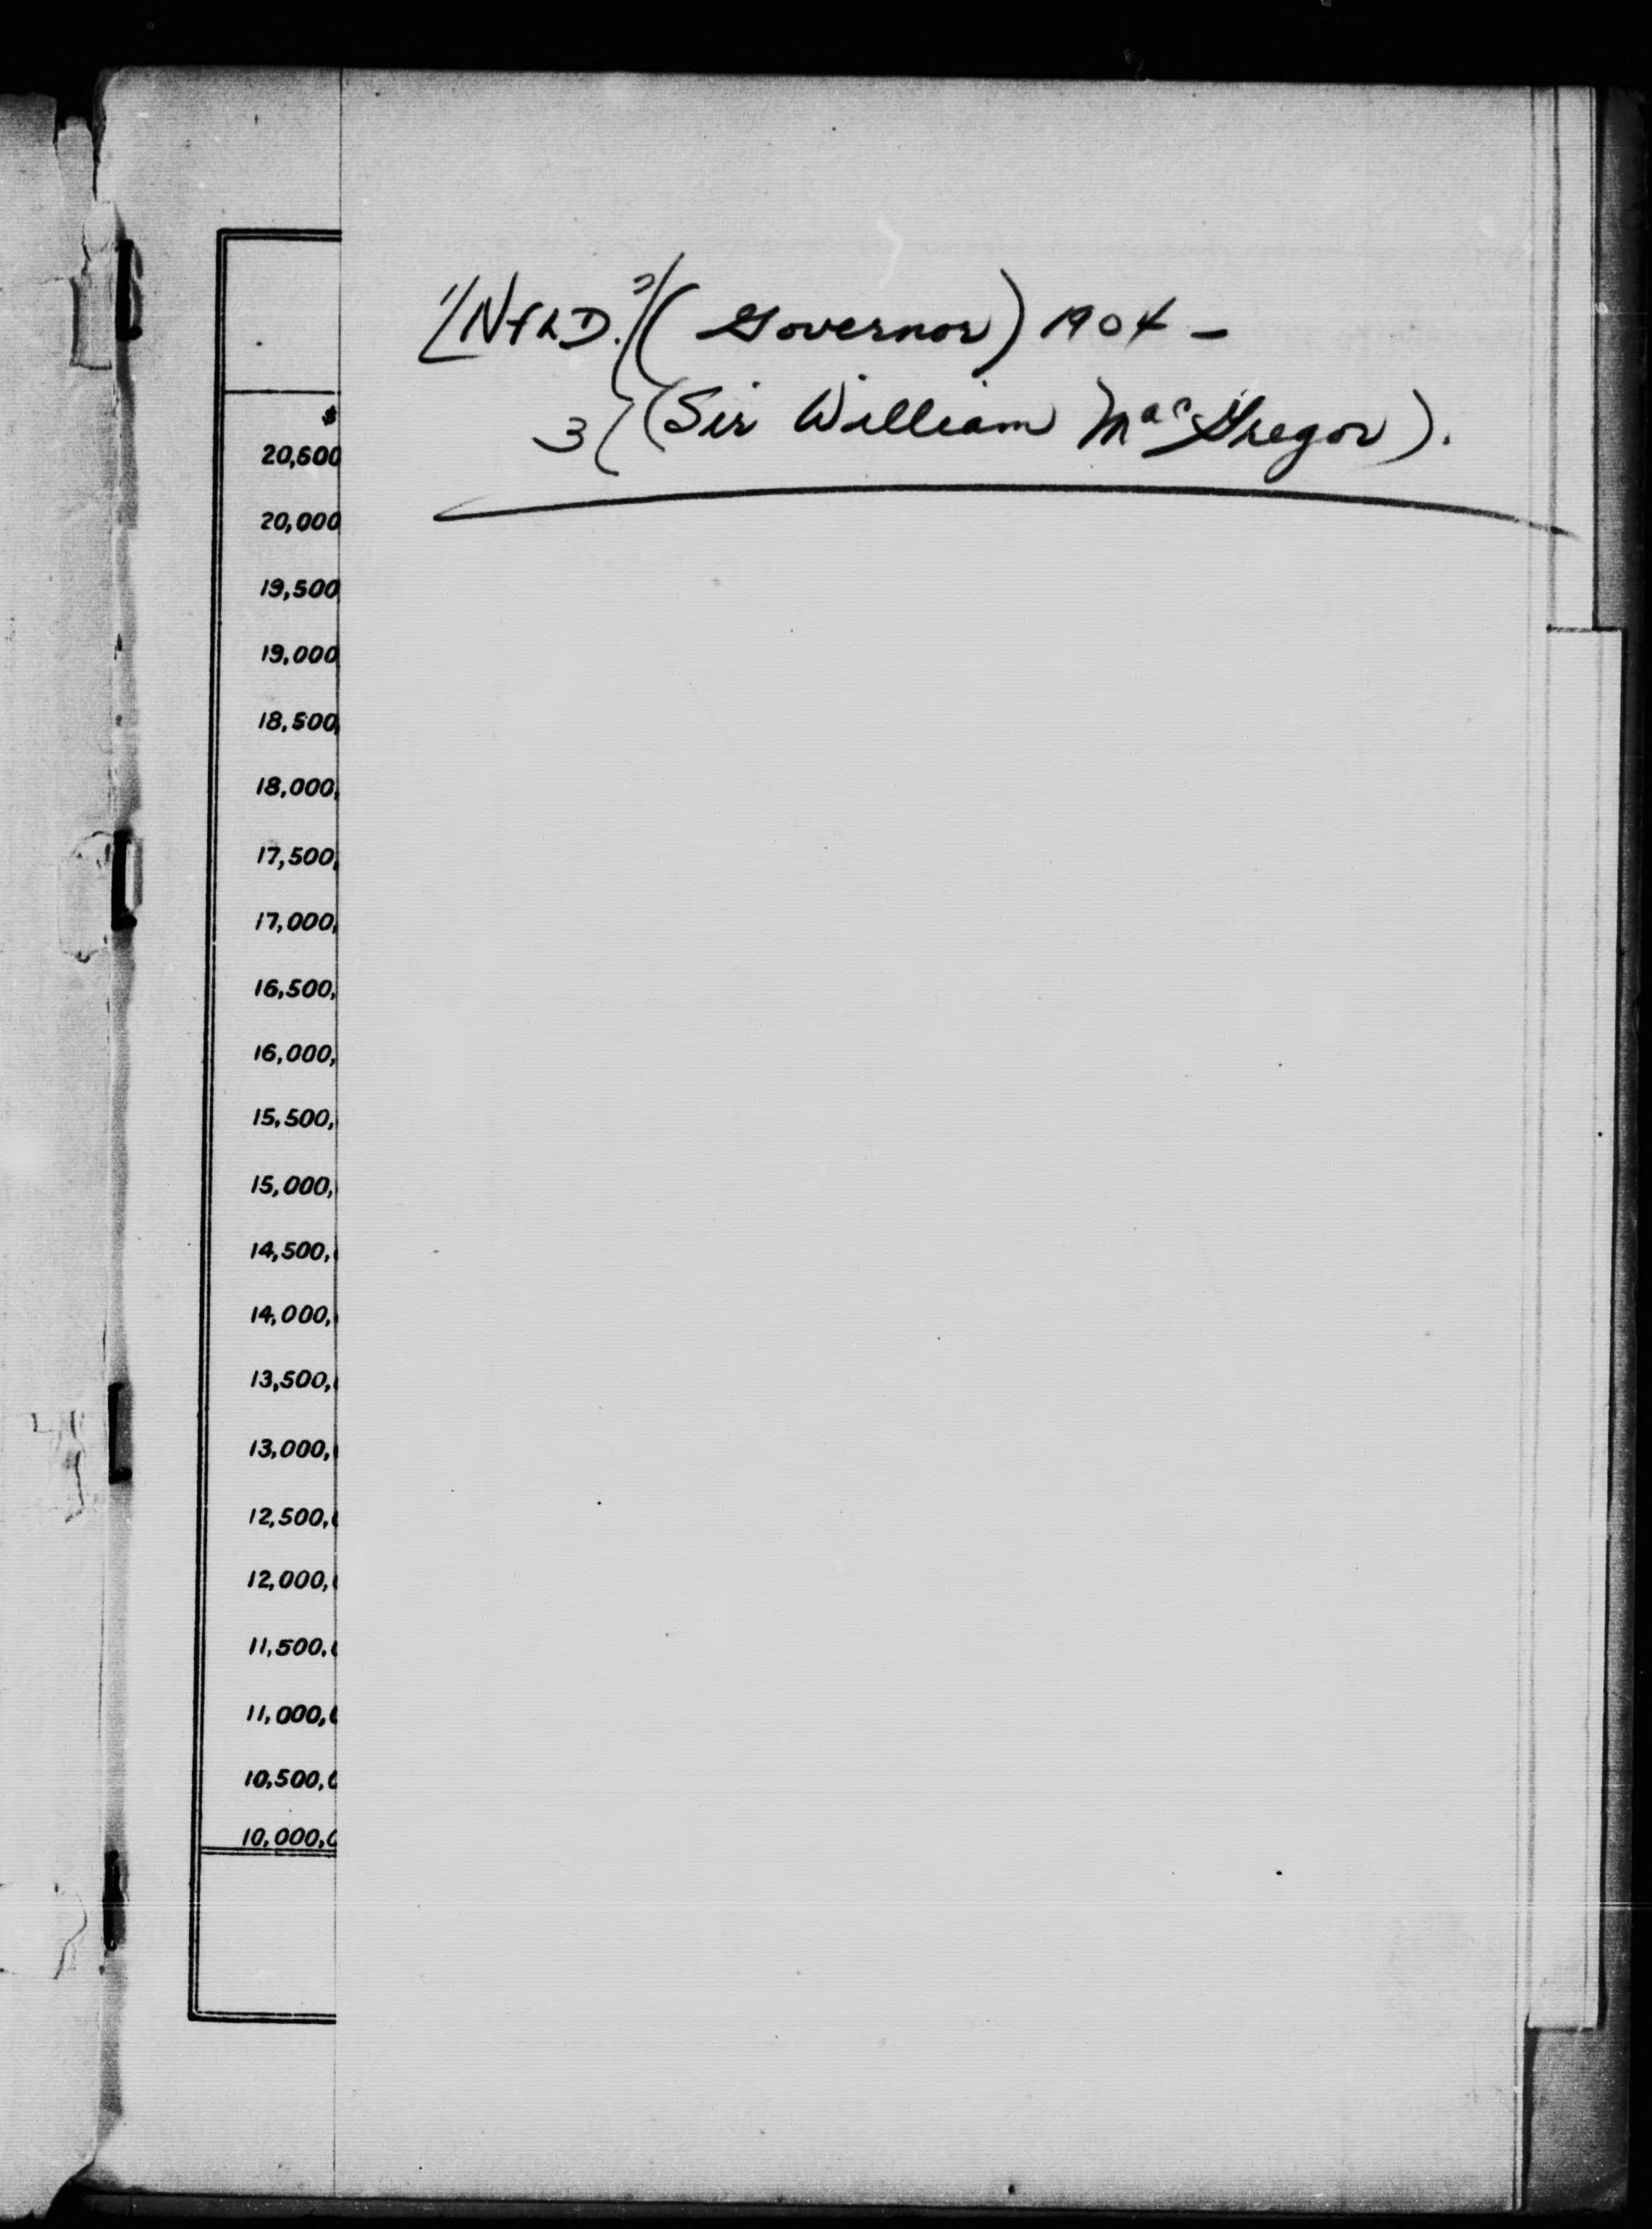 1/ NFLD. 2/ (Governor) 1904 –
3 (Sir William MacGregor).
$
20,500
20,000
19,500
19,000
18,500,
18,000,
17,500,
17,000,
16,500,
16,000,
15,500,
15,000,
14,500,
14,000,
13,500,
13,000,
12,500,
12,000,
11,500,
11,000,
10,500,
10,000,